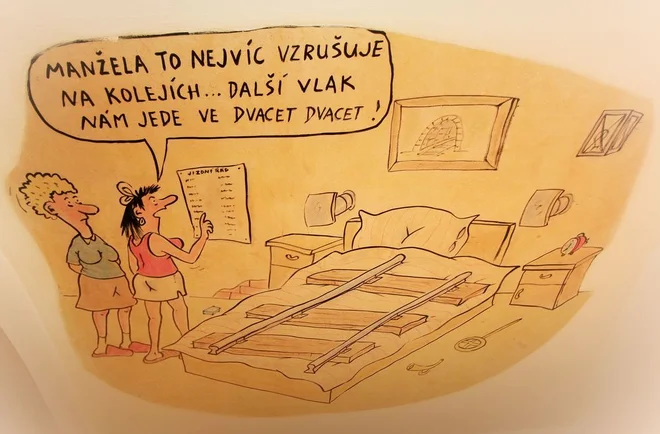 MANŽELA TO NEJVÍC VZRUŠUJE
NA KOLEJÍCH... DALŠÍ VLAK
NÁM JEDE VE DVACET DVACET!
JÍZDNÍ ŘÁD